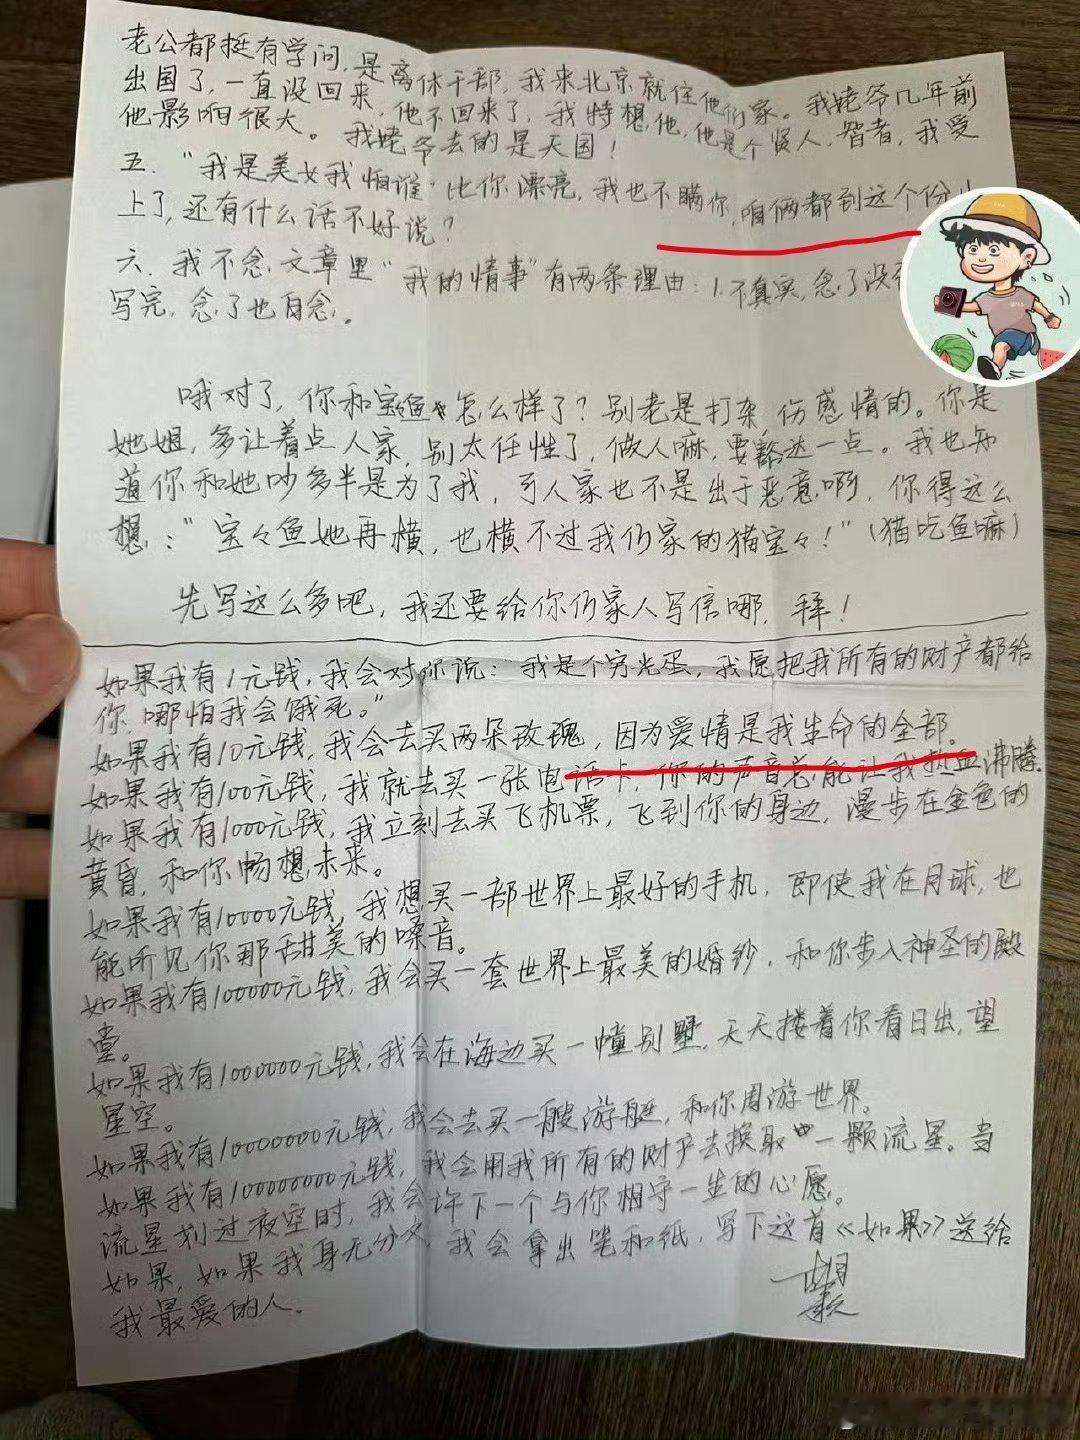 老公都挺有学问,是离休干部,我来北京就住他们家。我姥爷几年前
出国了,一直没回来,他不回来了,我特想他,他是个贤人,智者,我受
他影响很大。我姥爷去的是天国!
五."我是美女我怕谁"比你漂亮,我也不瞒你,咱俩都到这个份
上了,还有什么话不好说?
六.我不念文章里"我的情事"有两条理由:1.不真实,念了没
写完,念了也白念。
哦对了,你和宝鱼怎么样了?别老是打杂,伤感情的。你是
她姐,多让着点人家,别太任性了,做人嘛,要豁达一点。我也知
道你和她吵多半是为了我,可人家也不是出于恶意啊,你得这么
想:"宝々鱼她再横,也横不过我们家的猫宝々!"(猫吃鱼嘛)
先写这么多吧,我还要给你们家人写信哪.拜!
如果我有1元钱,我会对你说:"我是个穷光蛋,我愿把我所有的财产都给
你,哪怕我会饿死。"
如果我有10元钱,我会去买两朵玫瑰,因为爱情是我生命的全部。
如果我有100元钱,我就去买一张电话卡,你的声音总能让我热血沸腾.
如果我有1000元钱,我立刻去买飞机票,飞到你的身边,漫步在金色的
黄昏,和你畅想未来。
如果我有10000元钱,我想买一部世界上最好的手机,即使我在月球,也
能听见你那甜美的嗓音。
如果我有100000元钱,我会买一套世界上最美的婚纱,和你步入神圣的殿
堂。
如果我有1000000元钱,我会在海边买一幢别墅,天天搂着你看日出,望
星空。
如果我有10000000元钱,我会去买一艘游艇,和你周游世界。
如果我有100000000元钱,我会用我所有的财产去换取一颗流星。当
流星划过夜空时,我会许下一个与你相守一生的心愿。
如果,如果我身无分文,我会拿出笔和纸,写下这首《如果》送给
我最爱的人。